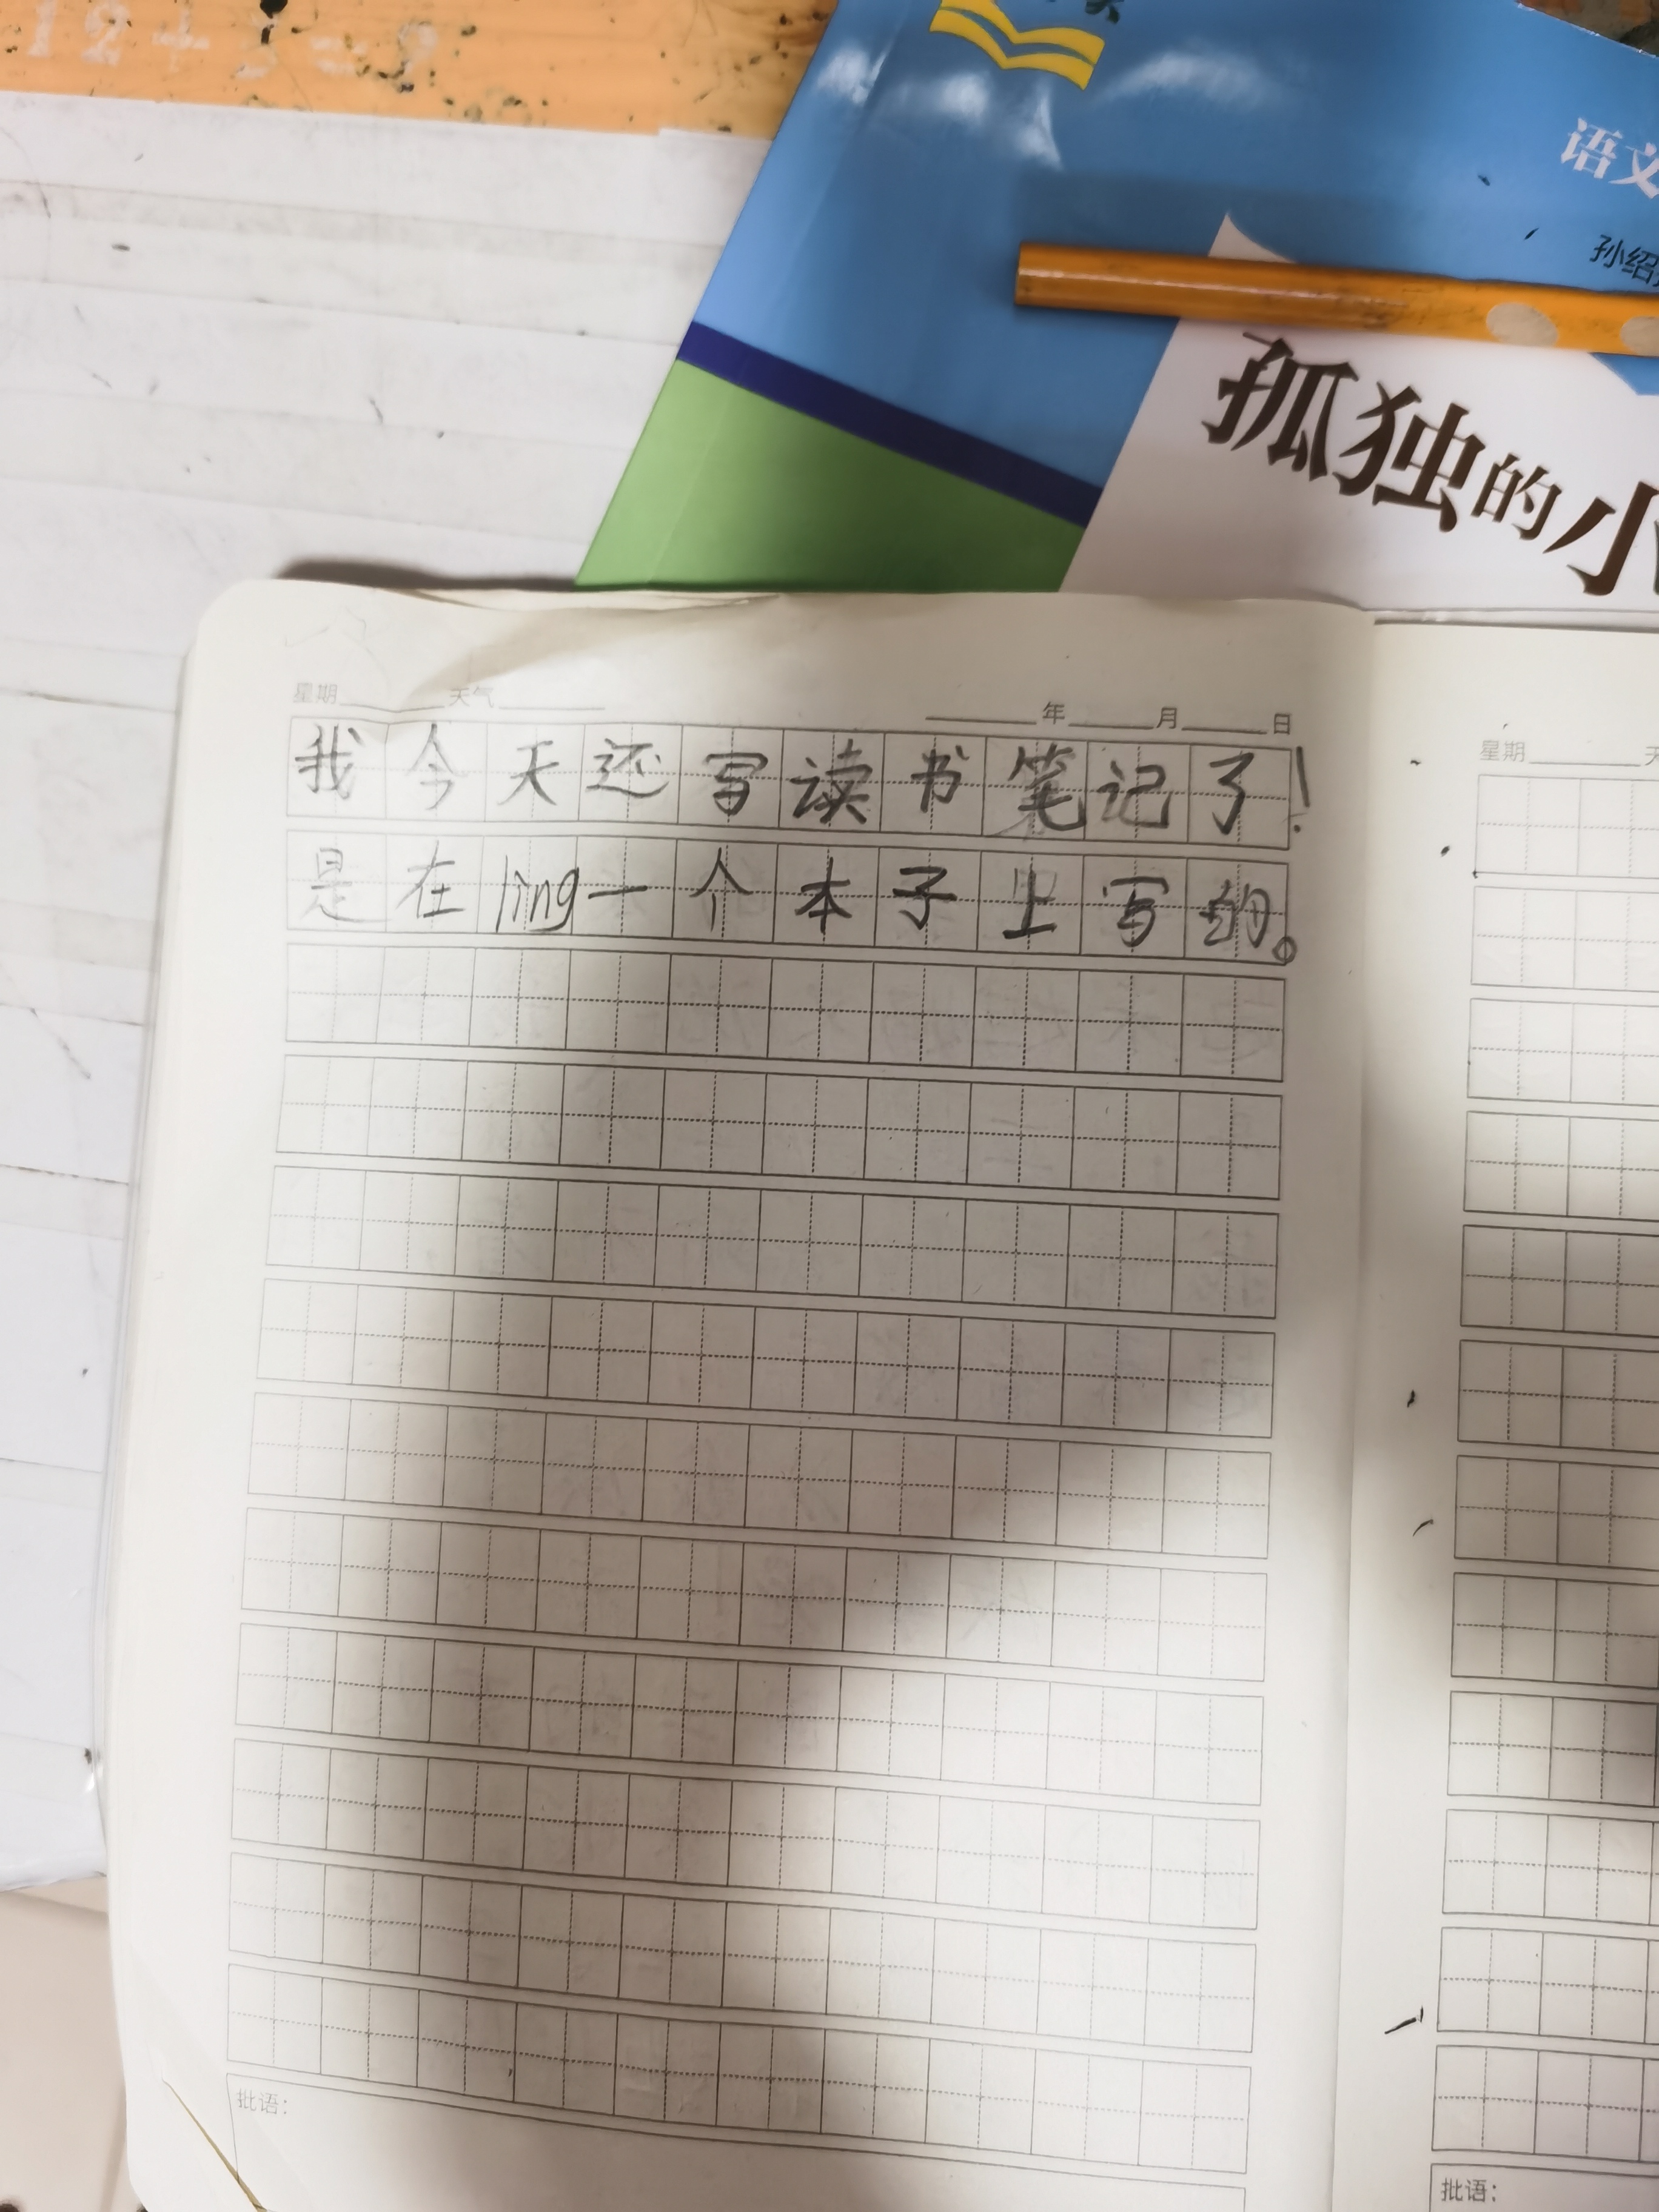 12+3=?
语文
孙绍
孤独的小
星期 天气
年 月 日
我今天还写读书笔记了!
是在ling一个本子上写的。
批语:
星期 天
批语: